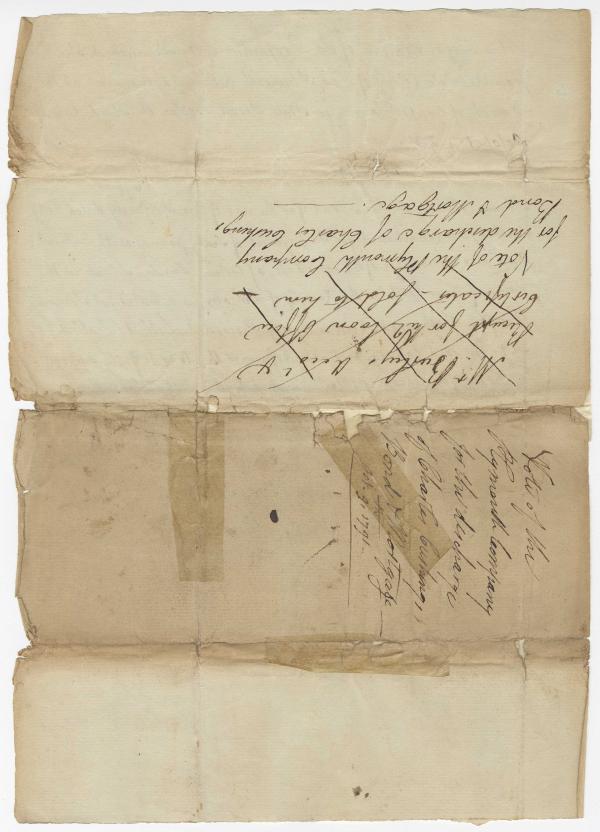 Mr. Acct &
Receipt for his Loan Office
Certificates - sold to him
Vote of the Plymouth Company
for the discharge of Charles Cushings
Bond & Mortgage. —
Vote of the
Plymouth Company
for the discharge
of Charles Cushings,
Bond & Mortgage —
1791 —